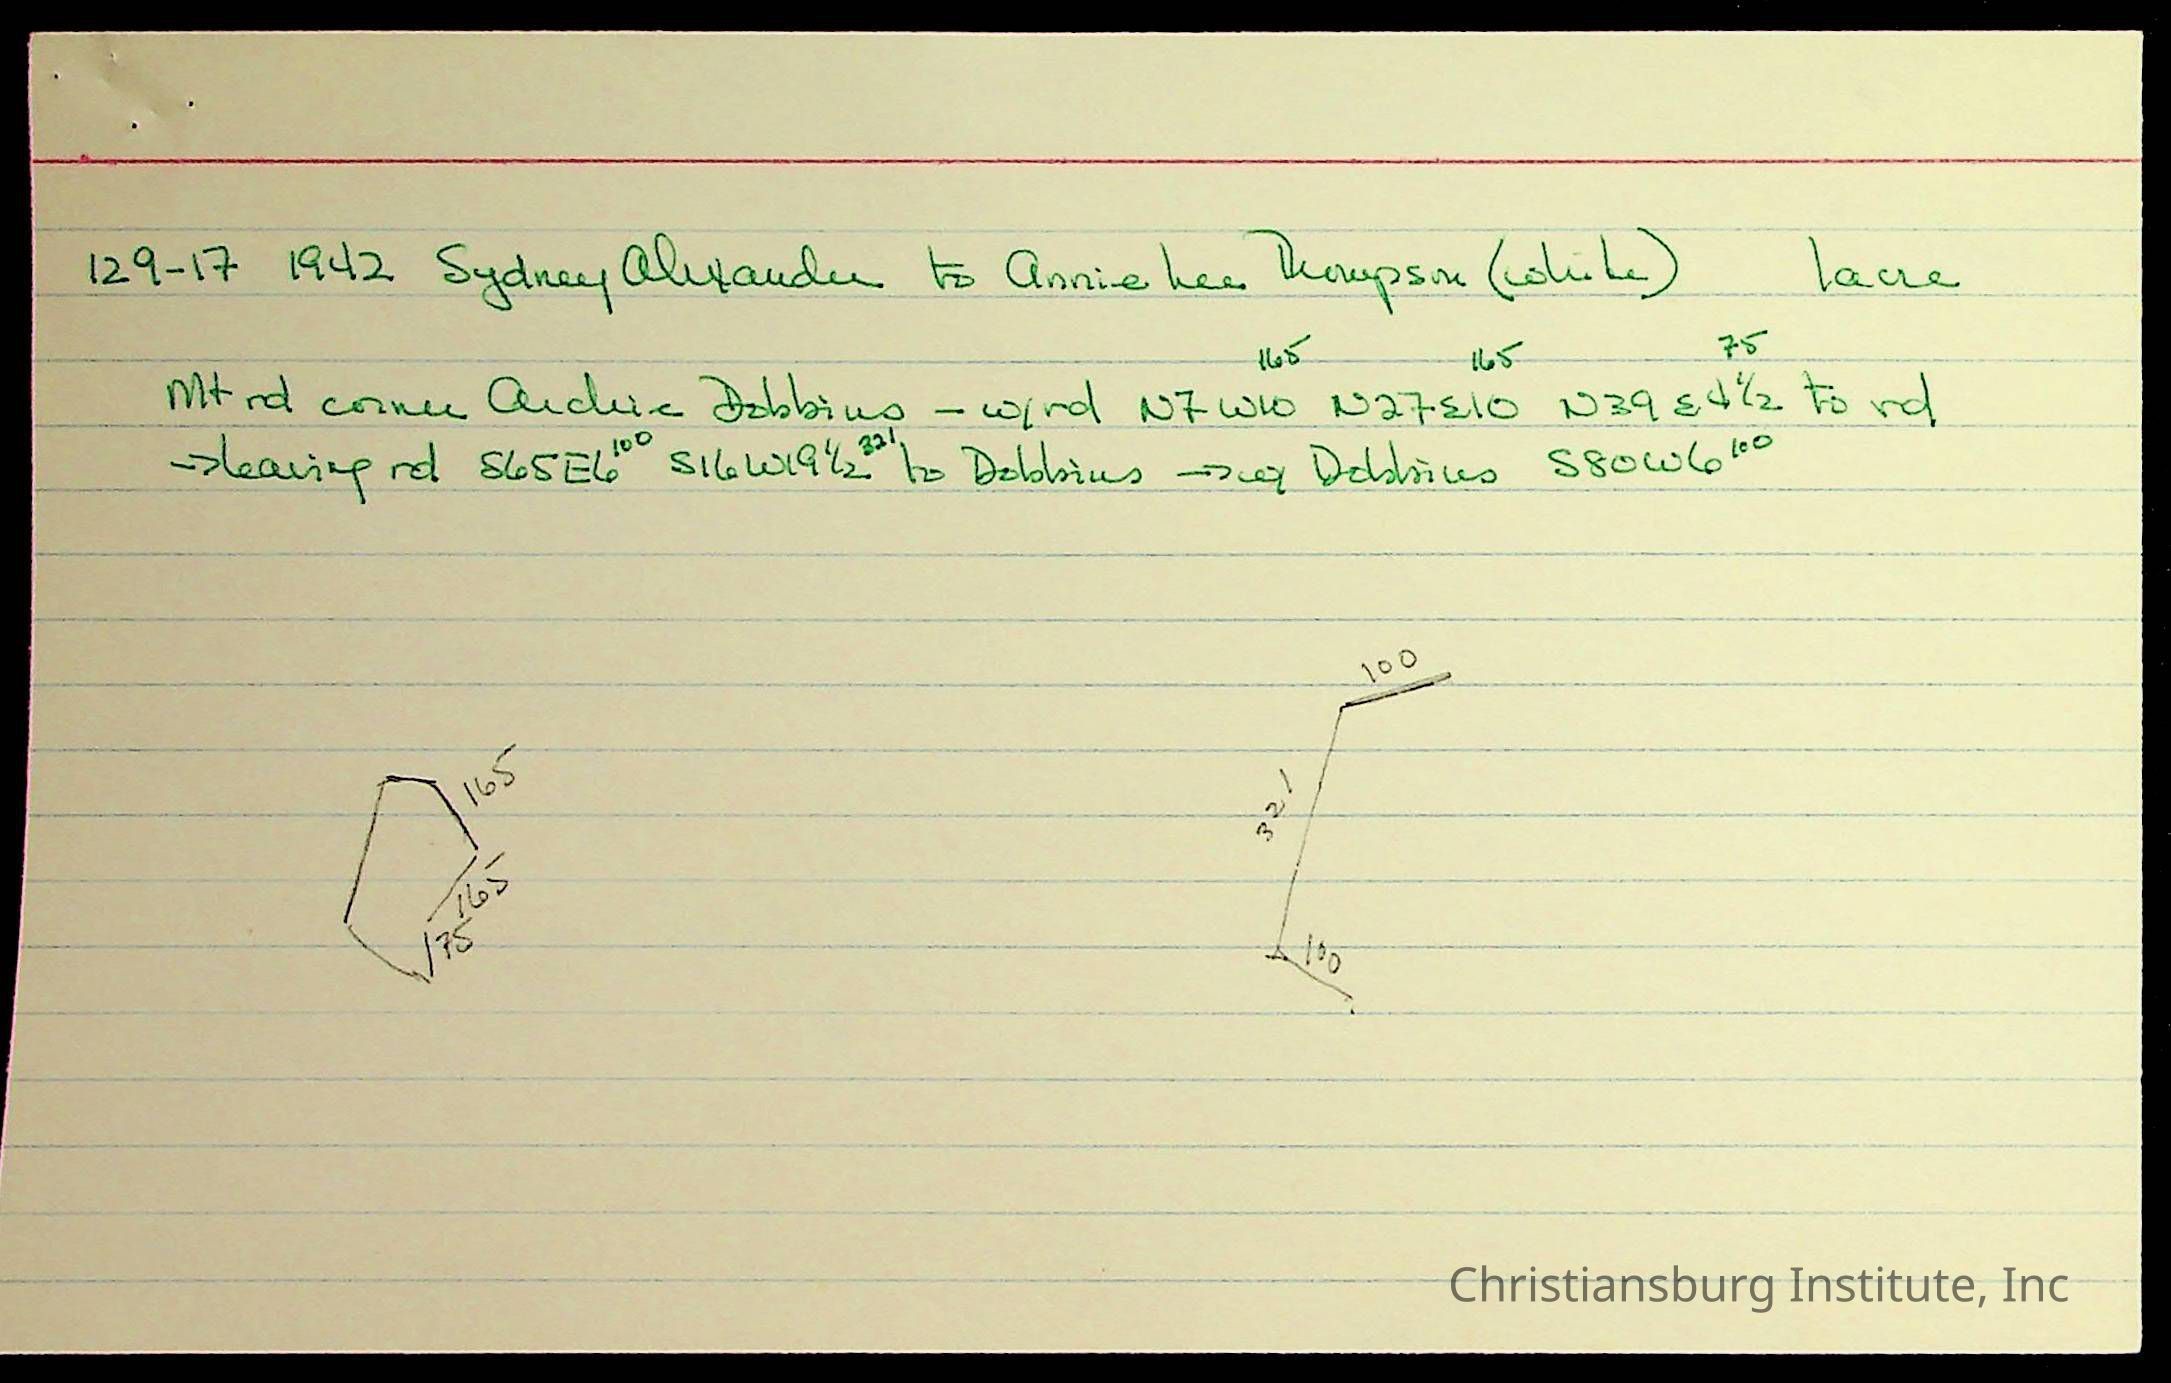 129-17 1942 Sydney Alexander to Annie Lee Thompson (white) 1 acre
165 165 75
Mt rd corner Archie Dobbins - w/rd N7W10 N27E10 N39E4½ to rd
→ leaving rd S65E6 100 S16W19½ 321 to Dobbins → w/ Dobbins S80W6 100
100
165
321
165
75
100
Christiansburg Institute, Inc